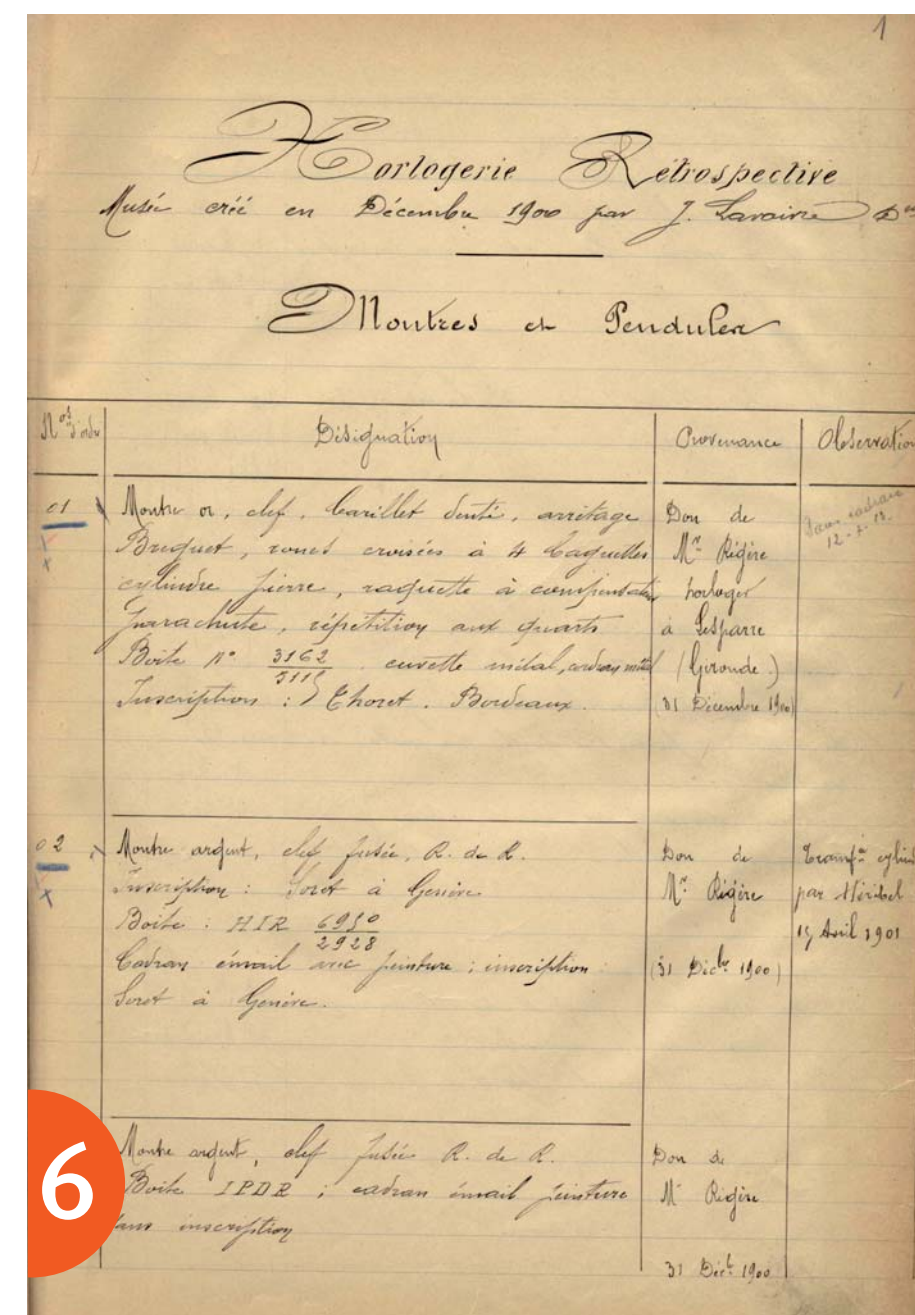 1
Horlogerie Rétrospective
Musée créé en Décembre 1900 par J. Lavairre
Montres et Pendules
Nos d'ordre
Désignation
Provenance
Observation
01
Montre or, clef, barillet denté, arrêtage
Breguet, roues croisées à 4 baguettes
cylindre pierre, raquette à compensation
parachute, répétition aux quarts
Boite No 3162
cuvette métal, cadran métal
Inscription : Choret. Bordeaux.
Don de
Mr Rigère
horloger
à Lesparre
(Gironde.)
(31 Décembre 1900)
Sans cadran
02
Montre argent, clef fusée, R. de R.
Inscription : Soret à Genève
Boite : HIR 6950
2928
Cadran émail avec peinture ; inscription :
Soret à Genève.
Don de
Mr Rigère
(31 Décbre 1900)
par Méribel
15 Avril 1901
Montre argent, clef fusée R. de R.
Boite IPDR ; cadran émail peinture
sans inscription
Don de
Mr Rigère
31 Décb 1900
6